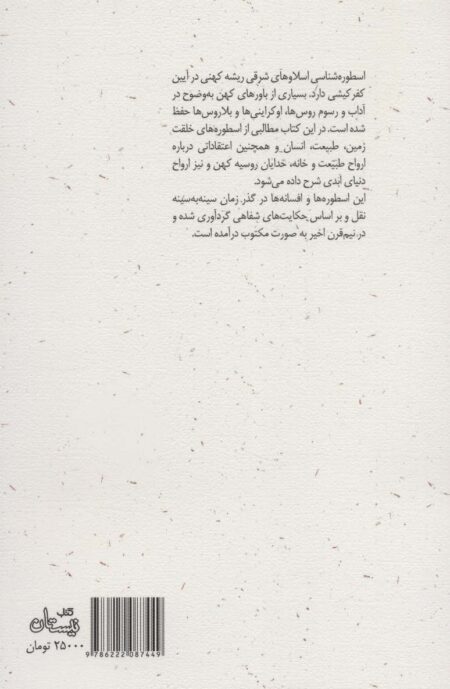 اسطوره‌شناسی اسلاوهای شرقی ریشه کهنی در آیین
کفرکیشی دارد. بسیاری از باورهای کهن به‌وضوح در
آداب و رسوم روس‌ها، اوکراینی‌ها و بلاروس‌ها حفظ
شده است. در این کتاب مطالبی از اسطوره‌های خلقت
زمین، طبیعت، انسان و همچنین اعتقاداتی درباره
ارواح طبیعت و خانه، خدایان روسیه کهن و نیز ارواح
دنیای ابدی شرح داده می‌شود.
این اسطوره‌ها و افسانه‌ها در گذر زمان سینه‌به‌سینه
نقل و بر اساس حکایت‌های شفاهی گردآوری شده و
در نیم‌قرن اخیر به صورت مکتوب درآمده است.
کتاب
نیستان
۲۵۰۰۰ تومان
9 786222 087449